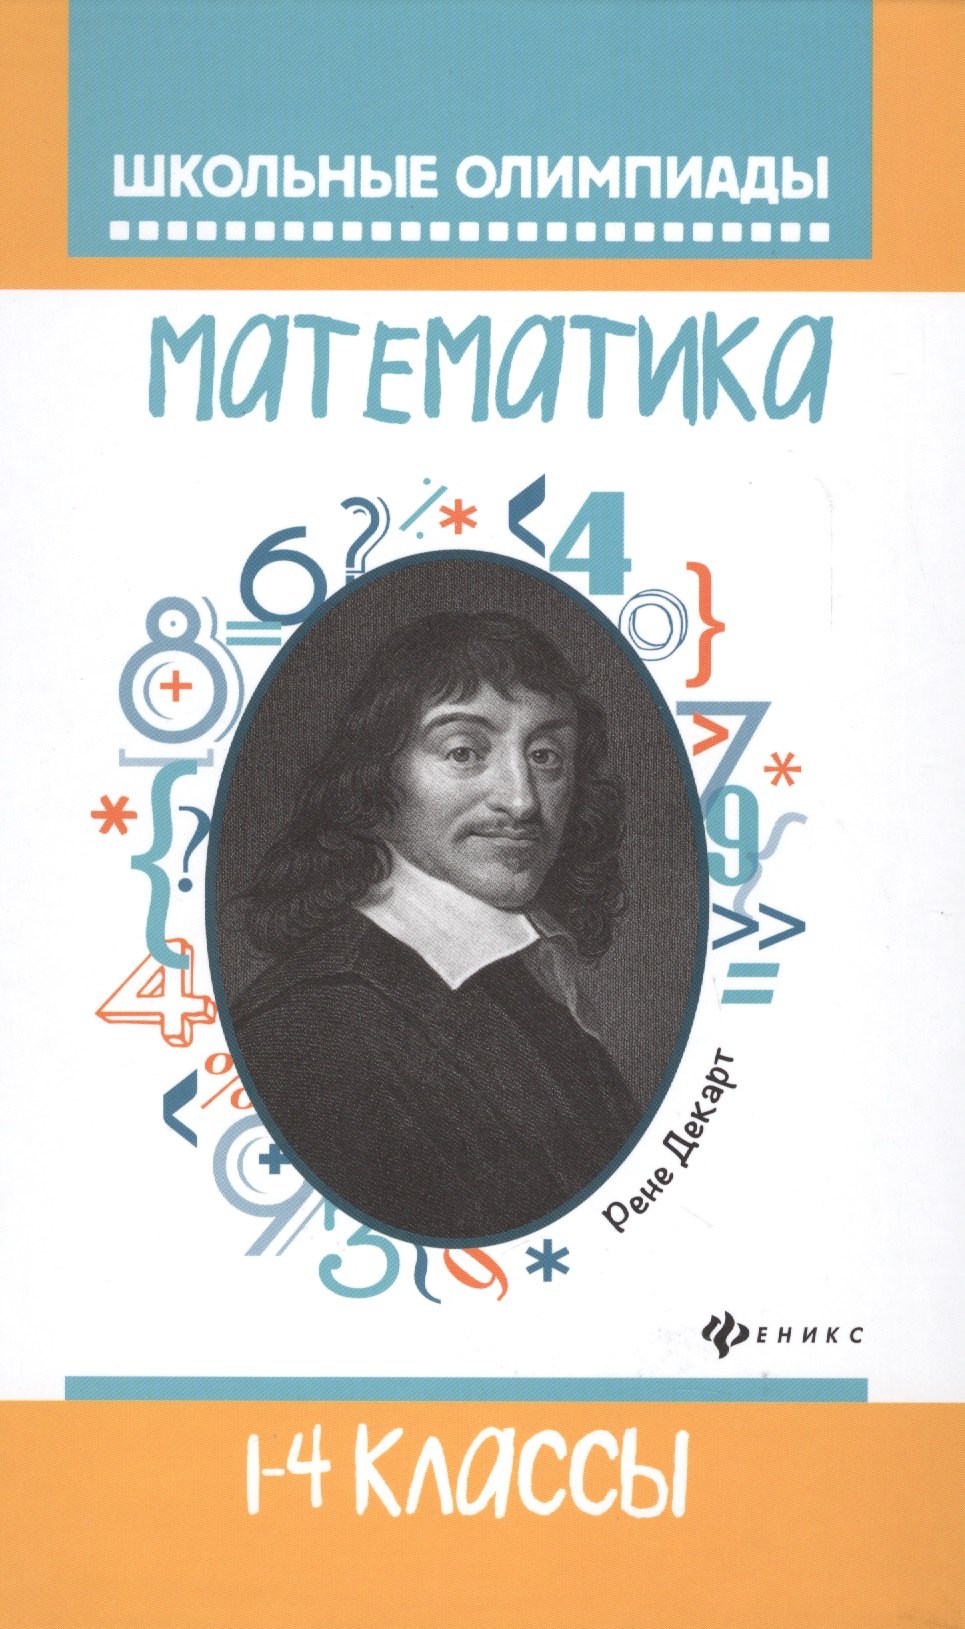 ШКОЛЬНЫЕ ОЛИМПИАДЫ
МАТЕМАТИКА
Рене Декарт
ФЕНИКС
1-4 КЛАССЫ